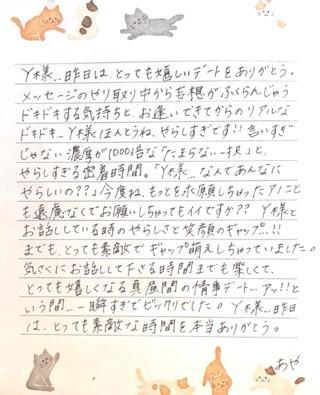 Y様…昨日は、とっても嬉しいデートをありがとう。
メッセージのやり取り中から妄想がふくらんじゃう
ドキドキする気持ちと、お逢いできてからのリアルな
ドキドキ…Y様ほんとうね、やらしすぎです!!言いすぎ
じゃない濃厚が1000倍な「たまらない一択」と、
やらしすぎる密着時間。「Y様…なんであんなに
やらしいの??」今度ね、もっとを願しちゃったアノこと
も遠慮なくでお願いしちゃってもイイですか?? Y様と
お話ししている時のやらしさと笑顔のギャップ…!!
までも、とっても素敵でギャップ萌えしちゃっていました。
気さくにお話しして下さる時間までも楽しくて、
とっても嬉しくなる真昼間の情事デート…アッ!!と
いう間…一瞬すぎてビックリでした。Y様…昨日
は、とっても素敵な時間を本当ありがとう。
あや